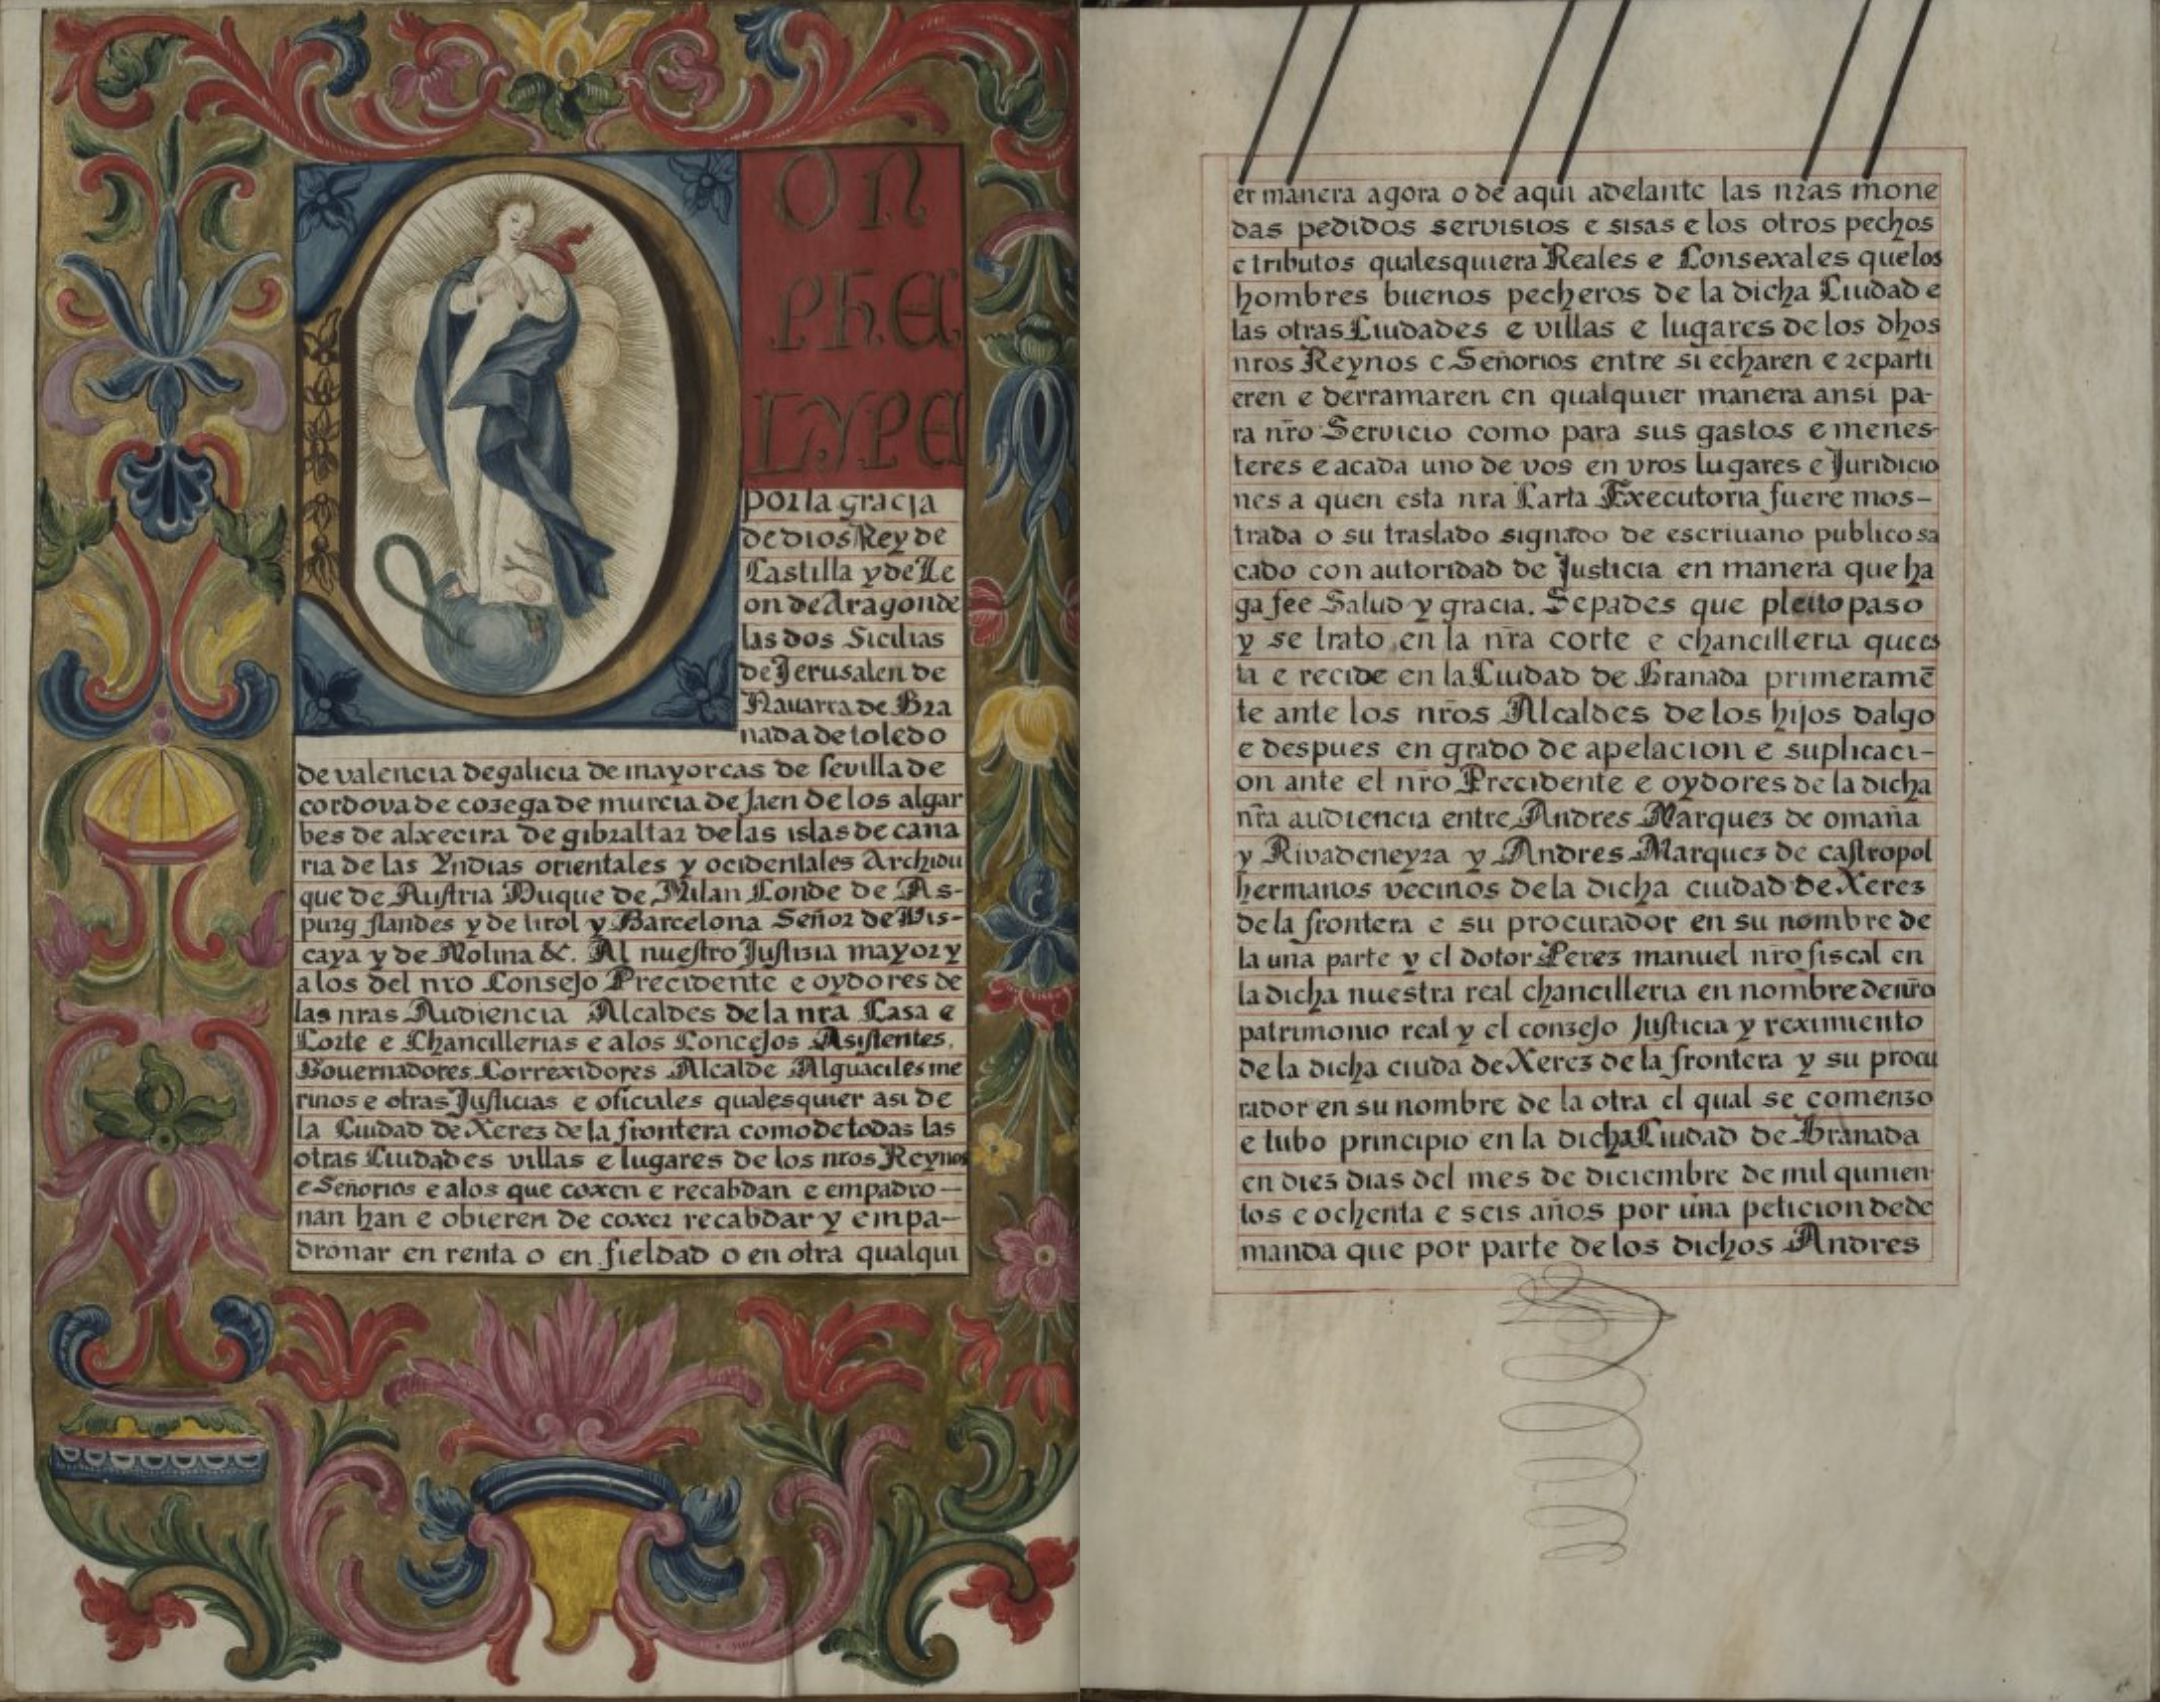 DON
PHE
LYPE
por la gracia
de dios Rey de
Castilla y de Le
on de Aragon de
las dos Sicilias
de Jerusalen de
Nauarra de Gra
nada de toledo
de valencia de galicia de mayorcas de sevilla de
cordova de corega de murcia de Jaen de los algar
bes de alxecira de gibraltar de las islas de cana
ria de las Yndias orientales y ocidentales Archidu
que de Austria Duque de Milan Conde de As-
purg flandes y de tirol y Barcelona Señor de Vis-
caya y de Molina &c. Al nuestro Justizia mayor y
a los del nro Consejo Precidente e oydores de
las nras Audiencia Alcaldes de la nra Casa e
Corte e Chancillerias e a los Concejos Asistentes,
Gouernadores Correxidores Alcalde Alguaciles me
rinos e otras Justicias e oficiales qualesquier asi de
la Ciudad de Xerez de la frontera como de todas las
otras Ciudades villas e lugares de los nros Reynos
e Señorios e a los que coxen e recabdan e empadro-
nan han e obieren de coxer recabdar y empa-
dronar en renta o en fieldad o en otra qualqui
er manera agora o de aqui adelante las nras mone
das pedidos servisios e sisas e los otros pechos
e tributos qualesquiera Reales e Consexales que los
hombres buenos pecheros de la dicha Ciudad e
las otras Ciudades e villas e lugares de los dhos
nros Reynos e Señorios entre si echaren e reparti
eren e derramaren en qualquier manera ansi pa-
ra nro Servicio como para sus gastos e menes-
teres e a cada uno de vos en vros lugares e Juridicio
nes a quen esta nra Carta Executoria fuere mos-
trada o su traslado signado de escriuano publico sa
cado con autoridad de Justicia en manera que ha
ga fee Salud y gracia. Sepades que pleito paso
y se trato en la nra corte e chancilleria que es
ta e recide en la Ciudad de Granada primeramē
te ante los nros Alcaldes de los hijos dalgo
e despues en grado de apelacion e suplicaci-
on ante el nro Precidente e oydores de la dicha
nra audiencia entre Andres Marquez de omaña
y Rivadeneyra y Andres Marquez de castropol
hermanos vecinos de la dicha ciudad de Xerez
de la frontera e su procurador en su nombre de
la una parte y el dotor Perez manuel nro fiscal en
la dicha nuestra real chancilleria en nombre de nro
patrimonio real y el conzejo Justicia y reximiento
de la dicha ciuda de Xerez de la frontera y su procu
rador en su nombre de la otra el qual se comenzo
e tubo principio en la dicha Ciudad de Granada
en diez dias del mes de diciembre de mil quinien-
tos e ochenta e seis años por una peticion de de
manda que por parte de los dichos Andres